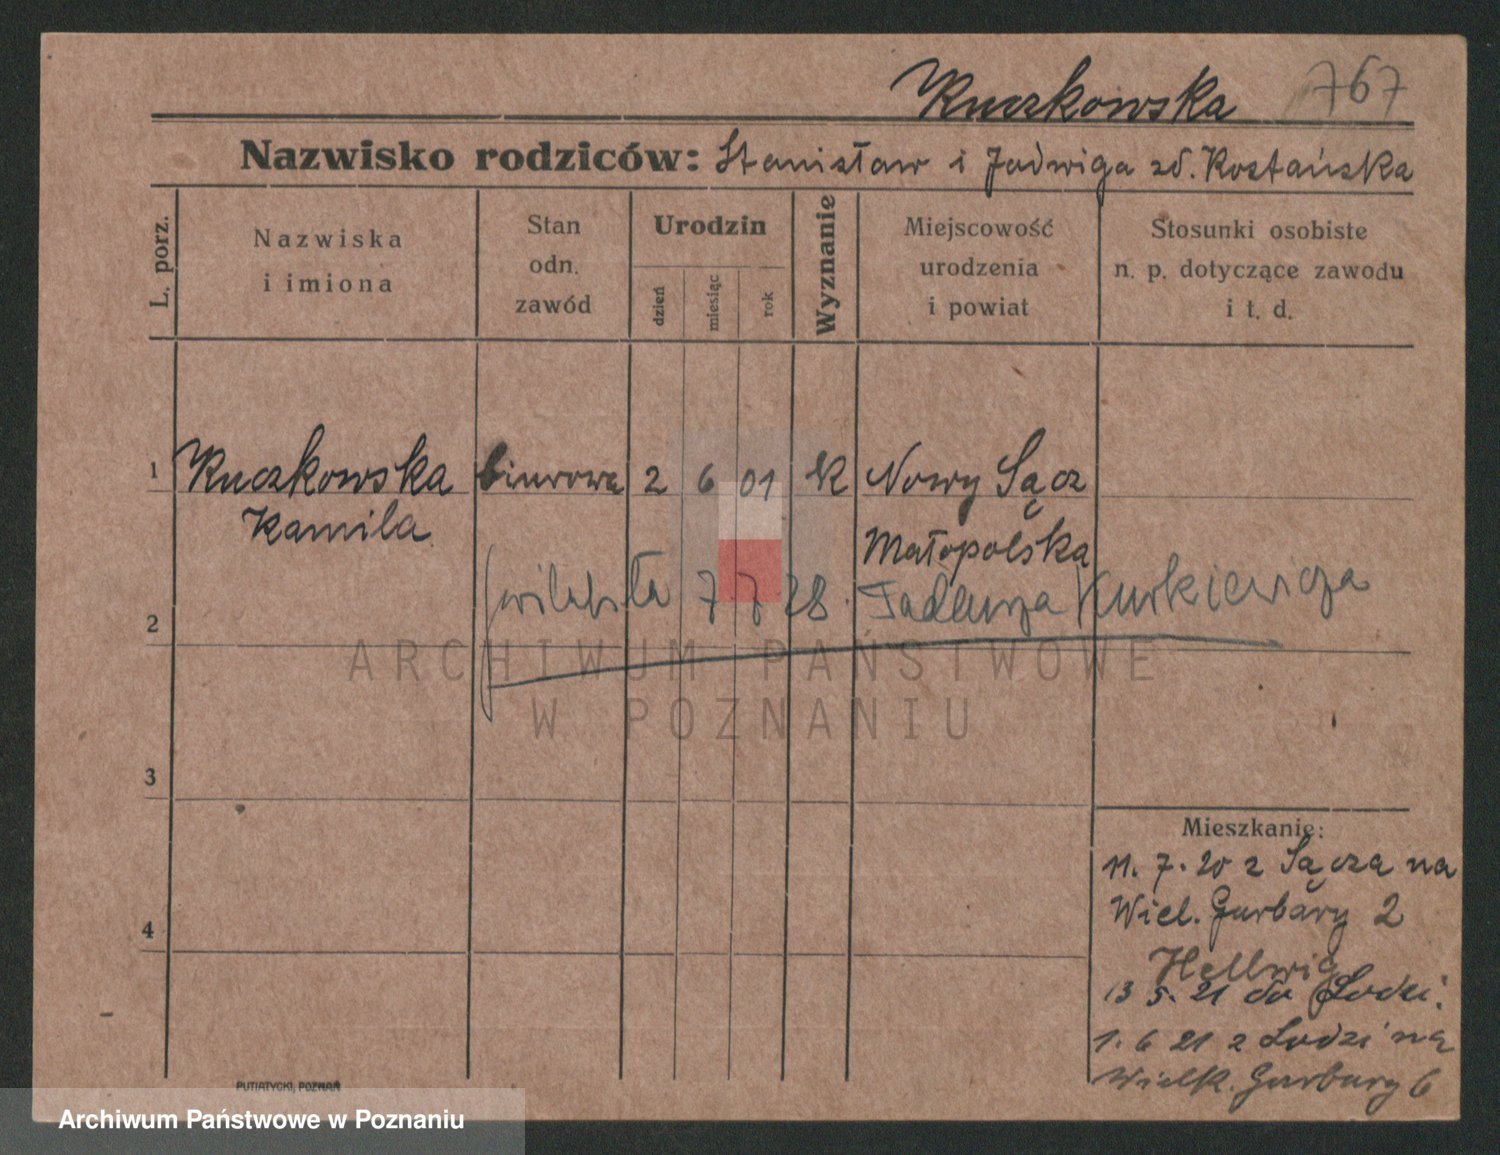 Kuczkowska 767
Nazwisko rodziców: Stanisław i Jadwiga zd. Kostańska
L. porz.
Nazwiska
i imiona
Stan
odn.
zawód
Urodzin
dzień
miesiąc
rok
Wyznanie
Miejscowość
urodzenia
i powiat
Stosunki osobiste
n. p. dotyczące zawodu
i t. d.
1 Kuczkowska biurowa 2 6 01 k Nowy Sącz
Kamila Małopolska
2 7 7 28. Tadeusza Kurkiewicza
ARCHIWUM PAŃSTWOWE
W POZNANIU
3
Mieszkanie:
11. 7. 20 z Sącza na
Wiel. Garbary 2
4
Hellwig
13 5. 21 do Łodzi.
1. 6 21 z Łodzi na
Wielk. Garbary 6
PUTIATYCKI, POZNAŃ
Archiwum Państwowe w Poznaniu